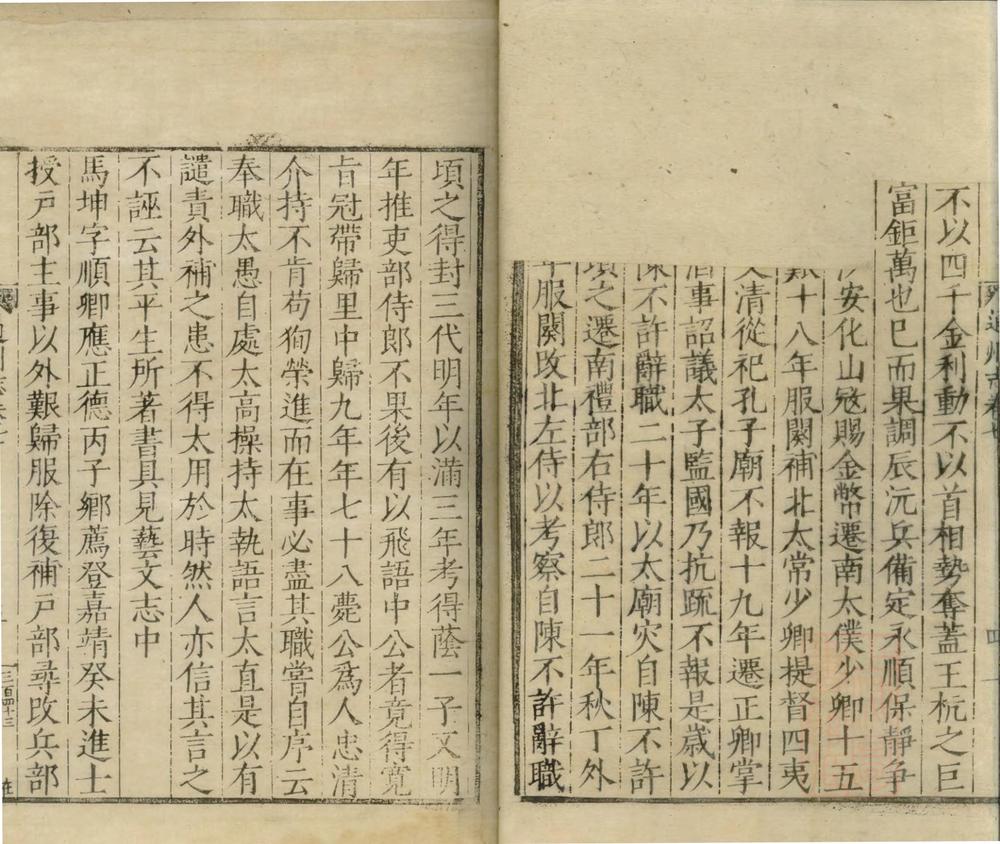 不以四千金利動不以首相勢奪蓋王杬之巨
富鉅萬也已而果調辰沅兵備定永順保靜爭
安化山寇賜金幣遷南太僕少卿十五
艱十八年服闋補北太常少卿提督四夷
清從祀孔子廟不報十九年遷正卿掌
事詔議太子監國乃抗疏不報是歲以
陳不許辭職二十年以太廟灾自陳不許
頃之遷南禮部右侍郎二十一年秋丁外
年服闋改北左侍以考察自陳不許辭職
頃之得封三代明年以滿三年考得蔭一子文明
年推吏部侍郎不果後有以飛語中公者竟得寬
旨冠帶歸里中歸九年年七十八薨公爲人忠清
介持不肯苟徇榮進而在事必盡其職嘗自序云
奉職太愚自處太高操持太執語言太直是以有
譴責外補之患不得太用於時然人亦信其言之
不誣云其平生所著書具見藝文志中
馬坤字順卿應正德丙子鄉薦登嘉靖癸未進士
授戸部主事以外艱歸服除復補戸部尋改兵部
三百四十三